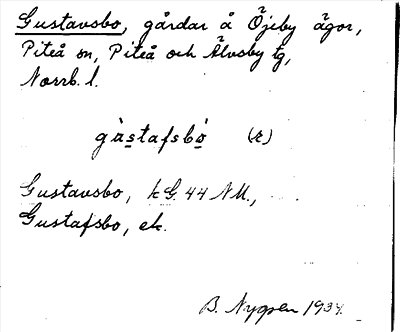 Gustavsbo, gårdar å Öjeby ägor,
Piteå sn, Piteå och Älvsby tg,
Norrb. l.
gàstafsbò (r)
Gustavsbo, k G. 44 NM.,
Gustafsbo, ek.
B. Nygren 1934.